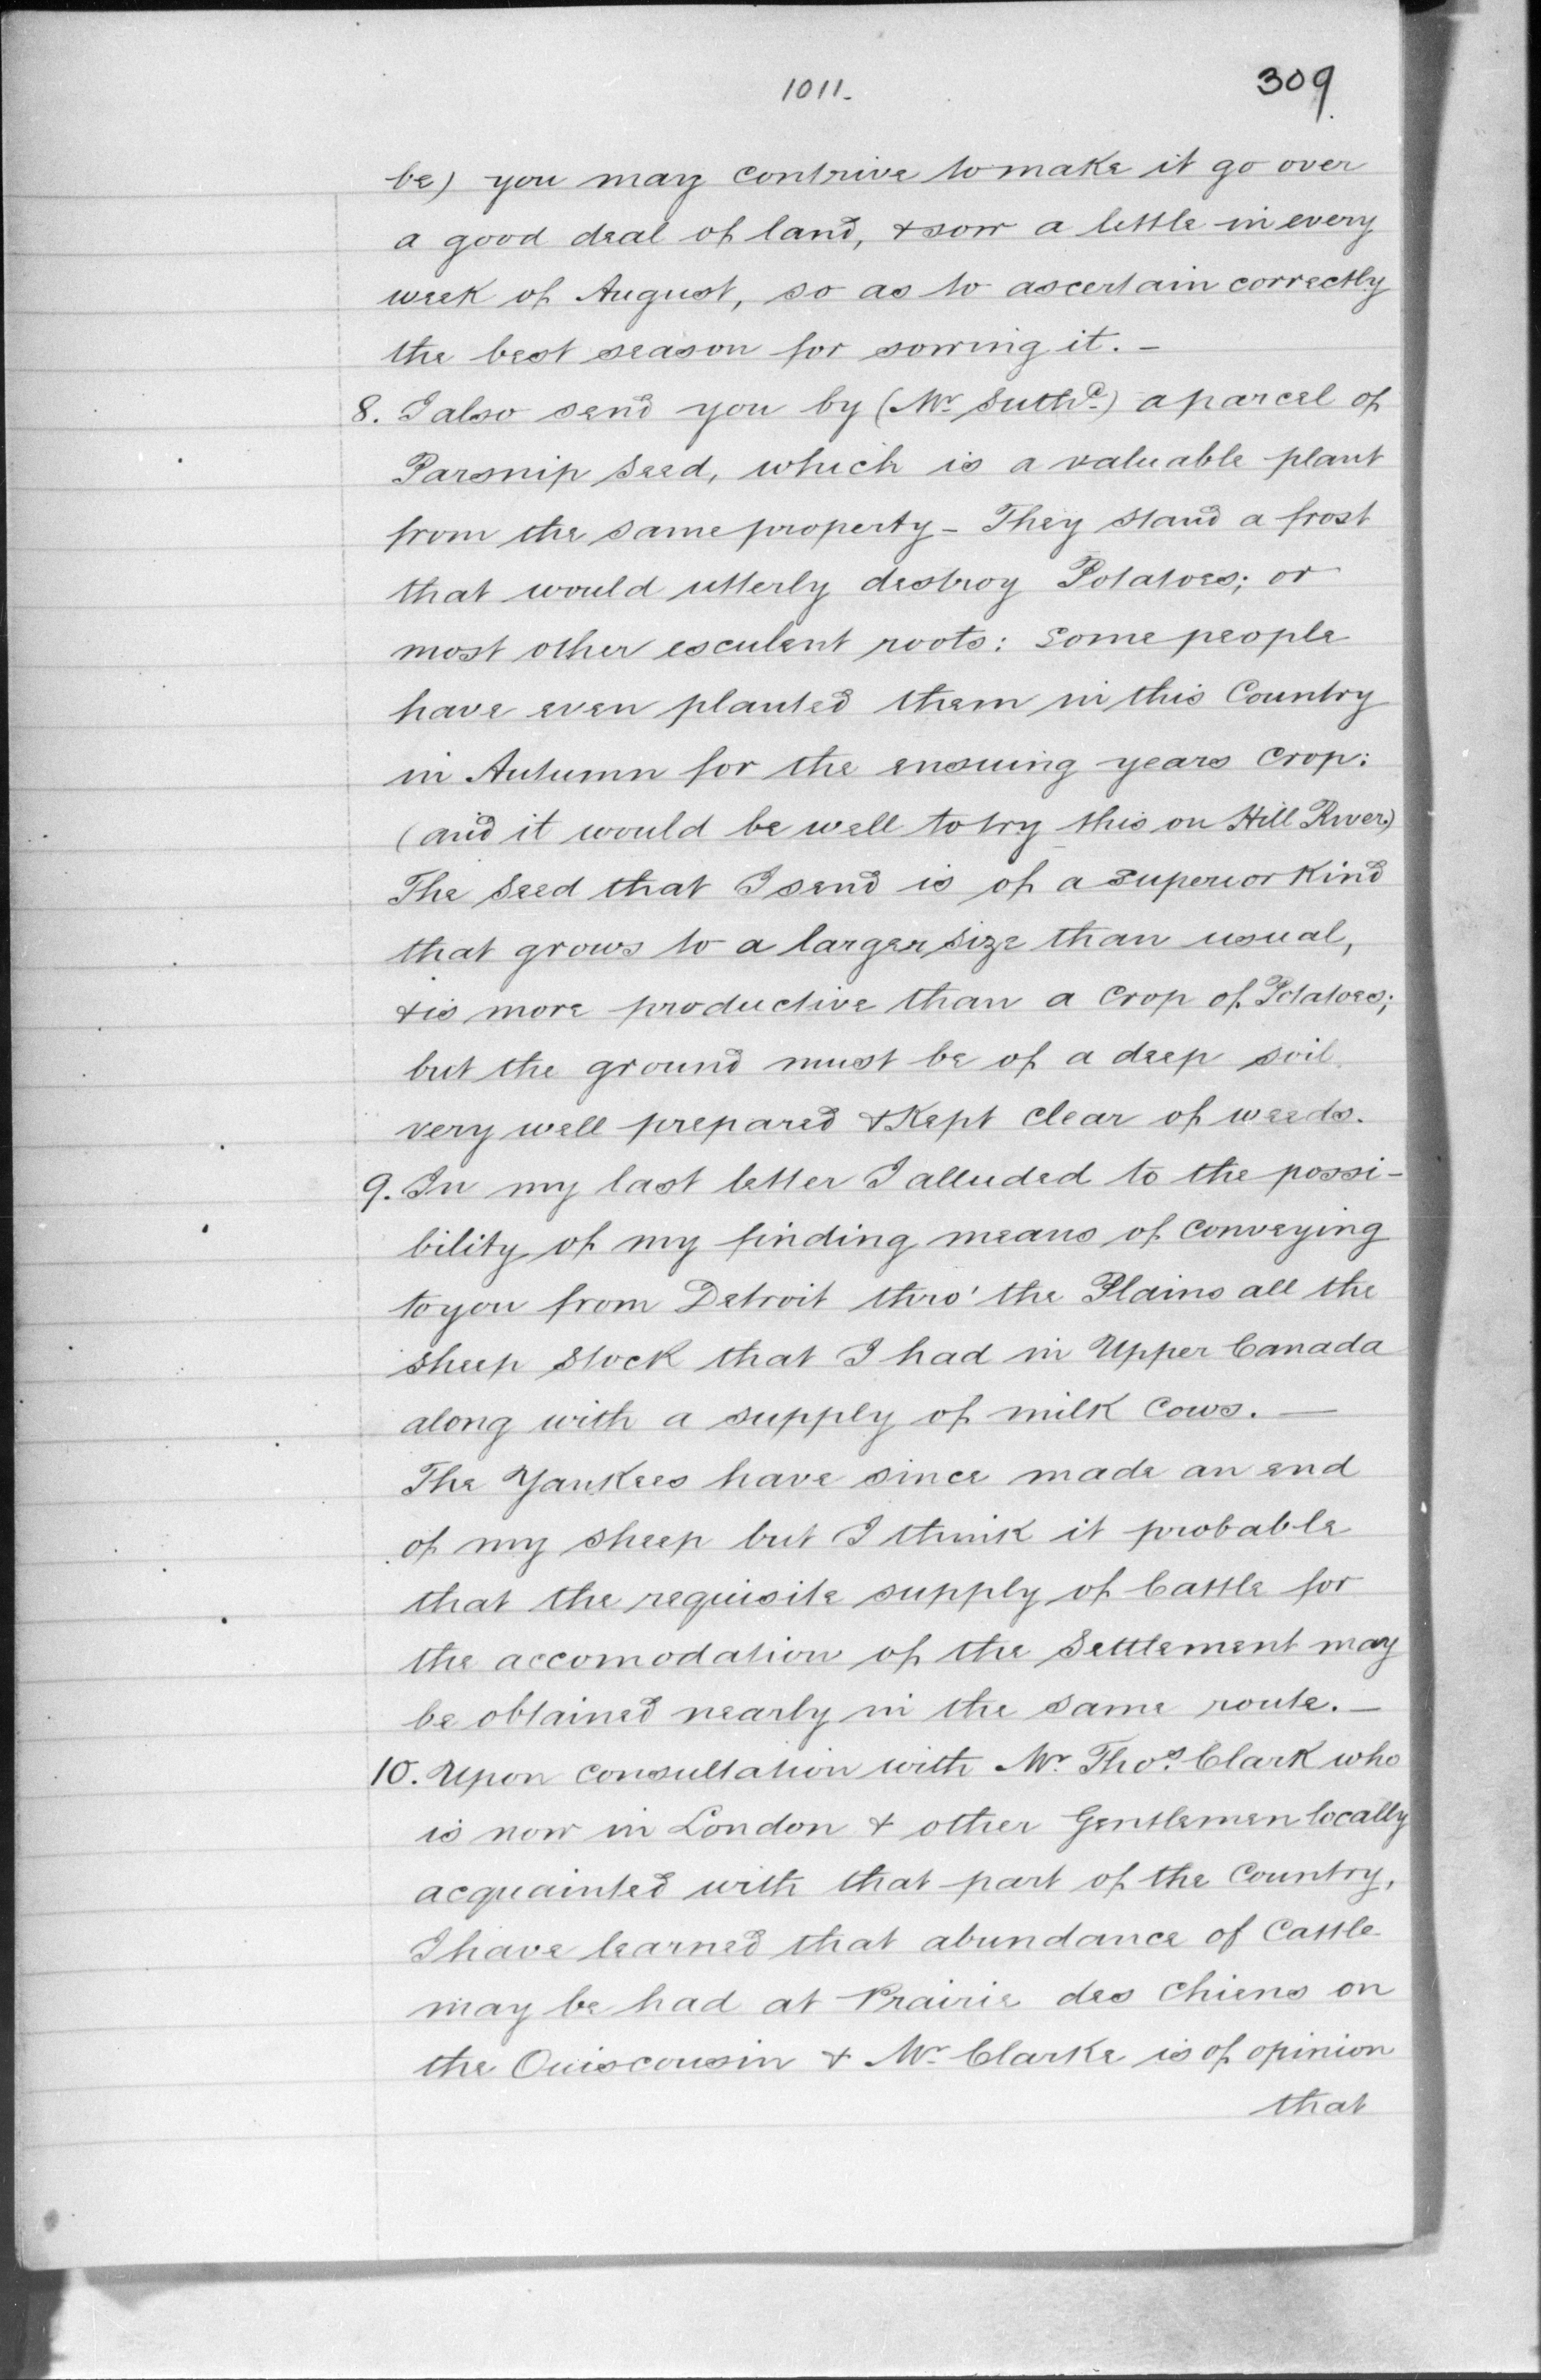 1011.
309
be) you may contrive to make it go over
a good deal of land, & sow a little in every
week of August, so as to ascertain correctly
the best season for sowing it. –
8. I also send you by (Mr. Suthd.) a parcel of
Parsnip Seed, which is a valuable plant
from the same property – They stand a frost
that would utterly destroy Potatoes; or
most other esculent roots: Some people
have even planted them in this Country
in Autumn for the ensuing years Crop:
(and it would be well to try this on Hill River)
The Seed that I send is of a superior Kind
that grows to a larger size than usual,
& is more productive than a Crop of Potatoes;
but the ground must be of a deep soil
very well prepared & Kept clear of weeds.
9. In my last letter I alluded to the possi-
bility of my finding means of conveying
to you from Detroit thro' the Plains all the
sheep stock that I had in Upper Canada
along with a supply of milk Cows. —
The Yankees have since made an end
of my sheep but I think it probable
that the requisite supply of Cattle for
the accomodation of the Settlement may
be obtained nearly in the same route. –
10. Upon consultation with Mr. Thos. Clark who
is now in London & other Gentlemen locally
acquainted with that part of the Country,
I have learned that abundance of Cattle
may be had at Prairie des Chiens on
the Ouisconsin & Mr. Clarke is of opinion
that